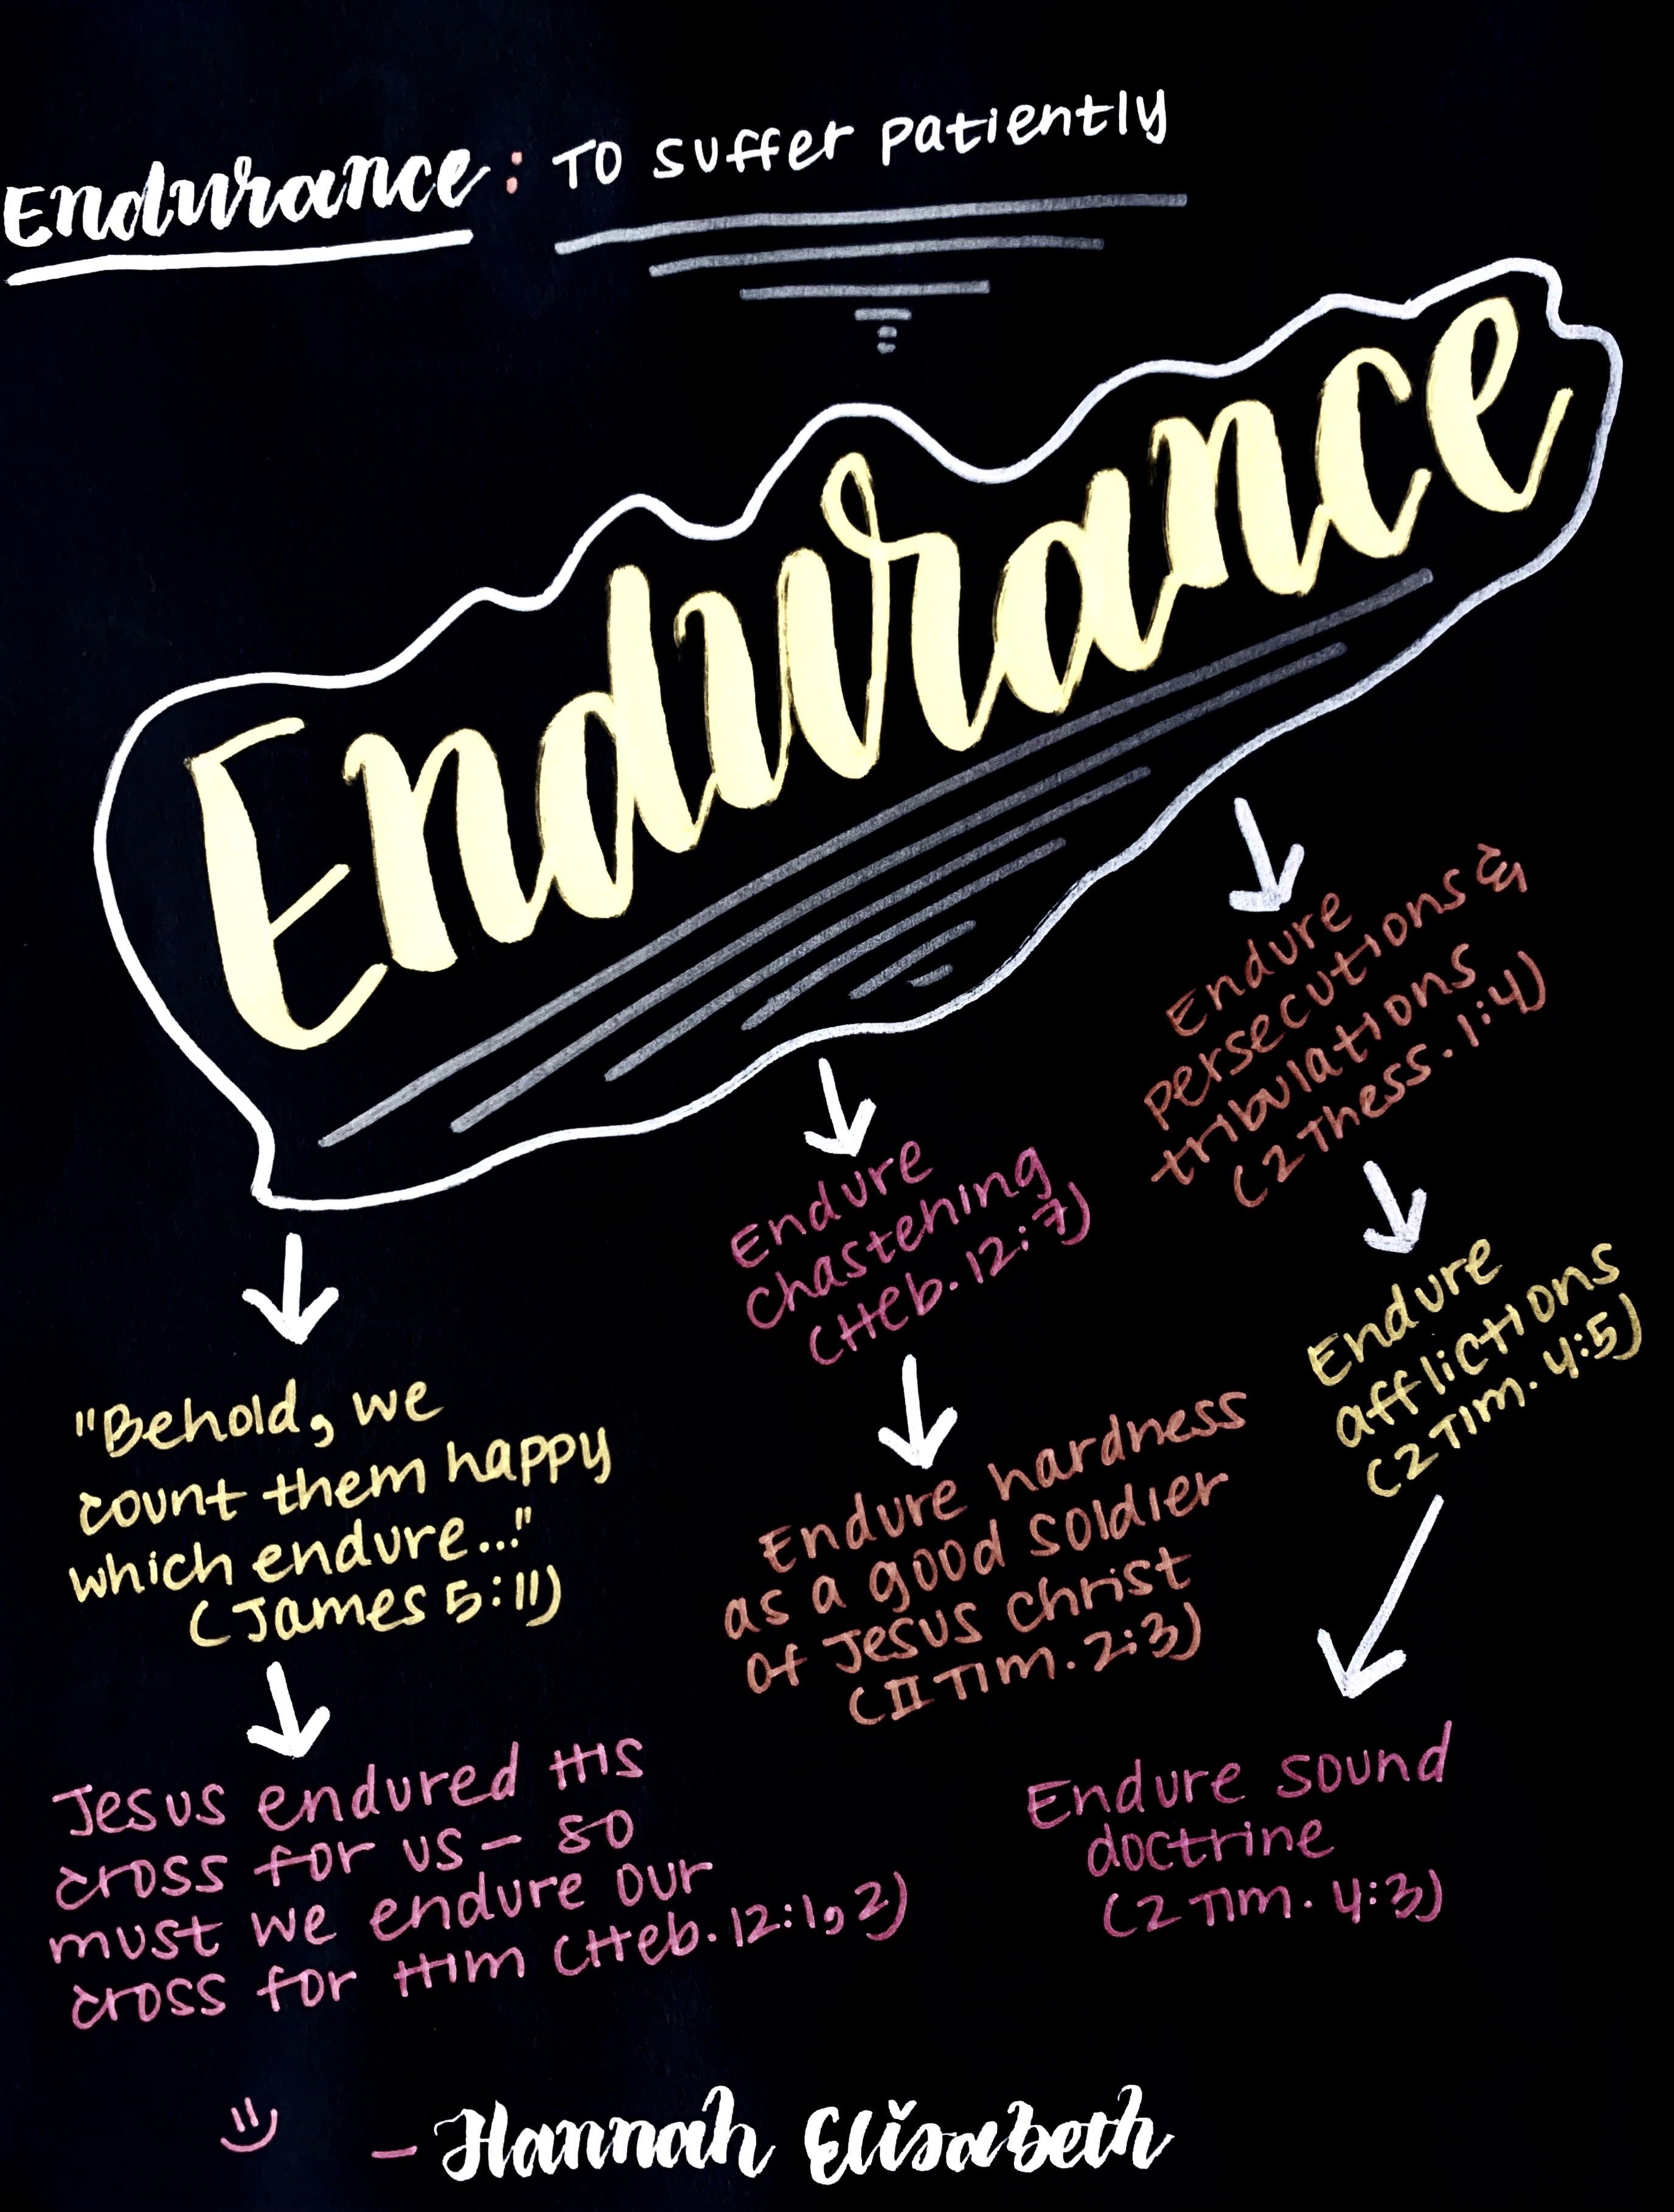 Endurance: To suffer patiently
Endurance
"Behold, we
count them happy
which endure..."
(James 5:11)
Jesus endured His
cross for us - so
must we endure our
cross for Him (Heb. 12:1,2)
Endure
chastening
(Heb. 12:7)
Endure hardness
as a good soldier
of Jesus Christ
(II Tim. 2:3)
Endure
persecutions &
tribulations
(2 Thess. 1:4)
Endure
afflictions
(2 Tim. 4:5)
Endure sound
doctrine
(2 Tim. 4:3)
- Hannah Elisabeth